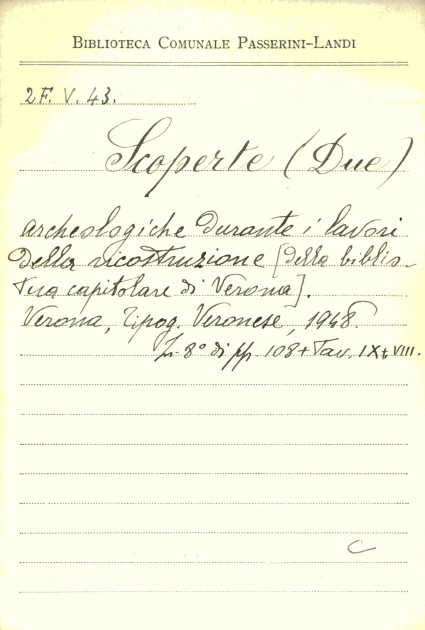 BIBLIOTECA COMUNALE PASSERINI-LANDI
2F. V. 43.
Scoperte (Due)
archeologiche durante i lavori
della ricostruzione [della biblio-
teca capitolare di Verona].
Verona, Tipog. Veronese, 1948.
In 8° di pp. 108 + Tav. IX + VIII.
C